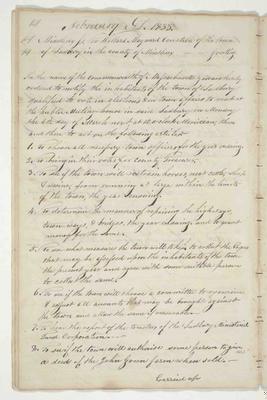 February 1833.
of Sudbury in the county of Middlesex greeting
In the name of the commonwealth of Massachusetts you are hereby
ordered to notify the inhabitants of the town of Sudbury
qualified to vote in elections and town affairs to meet at
the public meeting house in said Sudbury on Monday
the 4th day of March next at o'clock and
there to act on the following articles
1. To choose all necessary town officers for the year ensuing.
2. To bring in their votes for county treasurer.
3. To see if the town will restrain horses neat cattle sheep
& swine from running at large within the limits
of the town the year ensuing.
4. To determine the manner of repairing the highways
town ways & bridges the year ensuing and to grant
money for the same.
5. To see what measures the town will take to collect the taxes
that may be assessed upon the inhabitants of the town
the present year and agree with some suitable person
to collect the same.
6. To see if the town will choose a committee to examine
& adjust all accounts that may be brought against
the town and allow the same if reasonable.
7. To hear the report of the trustees of the Sudbury Ministerial
Fund Corporation
8. To see if the town will authorise some person to give
a deed of the John farm when sold
Carried up